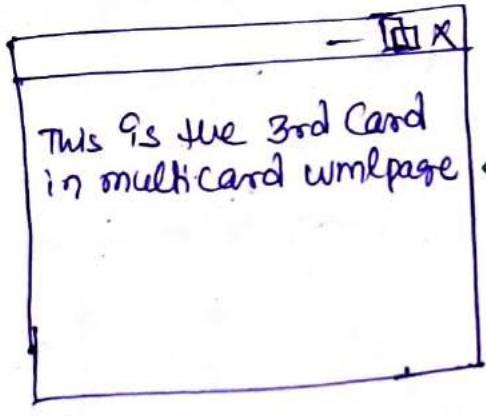 This is the 3rd Card
in multicard wmlpage